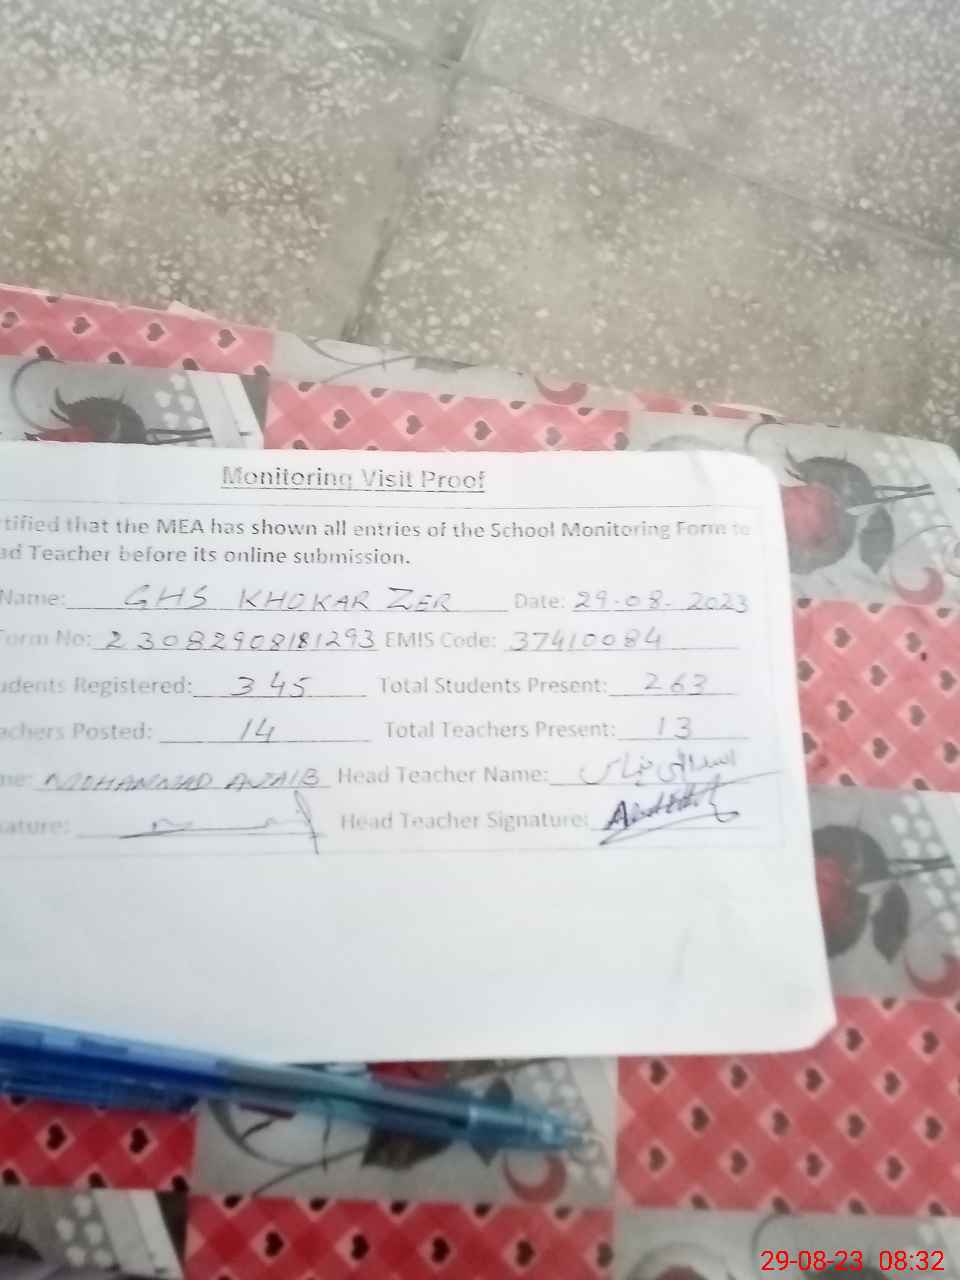 Monitoring Visit Proof
tified that the MEA has shown all entries of the School Monitoring Form to
ad Teacher before its online submission.
Name: GHS KHOKAR ZER Date: 29-08-2023
Form No: 23082908181293 EMIS Code: 37410084
udents Registered: 345 Total Students Present: 263
achers Posted: 14 Total Teachers Present: 13
me: MOHAMMAD AJAIB Head Teacher Name:
ature: Head Teacher Signature:
29-08-23 08:32